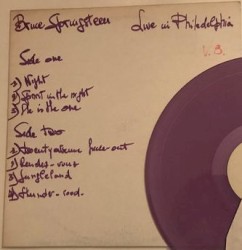 Bruce Springsteen Live in Philadelphia
V.3.
Side one
1) Night
2) Spirit in the night
3) She is the one
Side two
1) twentyavenue freeze-out
2) Rendez-vous
3) Jungleland
4) thunder-road.